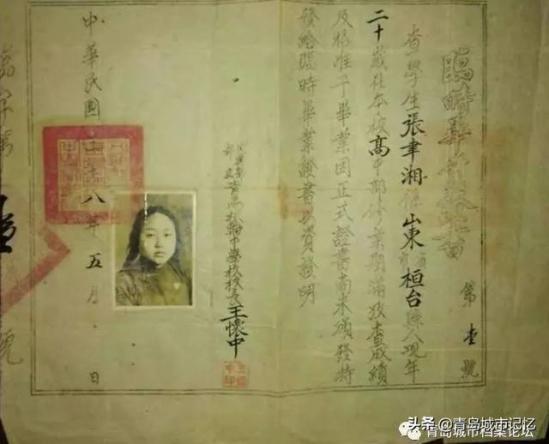 臨時畢業證書
第壹號
查學生張聿湘係山東省桓台縣人現年
二十歲在本校高中部修業期滿攷查成績
及格准予畢業因正式證書尚未頒發特
發給臨時畢業證書以資證明
中學校校長王懷中
中華民國十八年五月 日
头条 @青岛城市记忆
青岛城市档案论坛